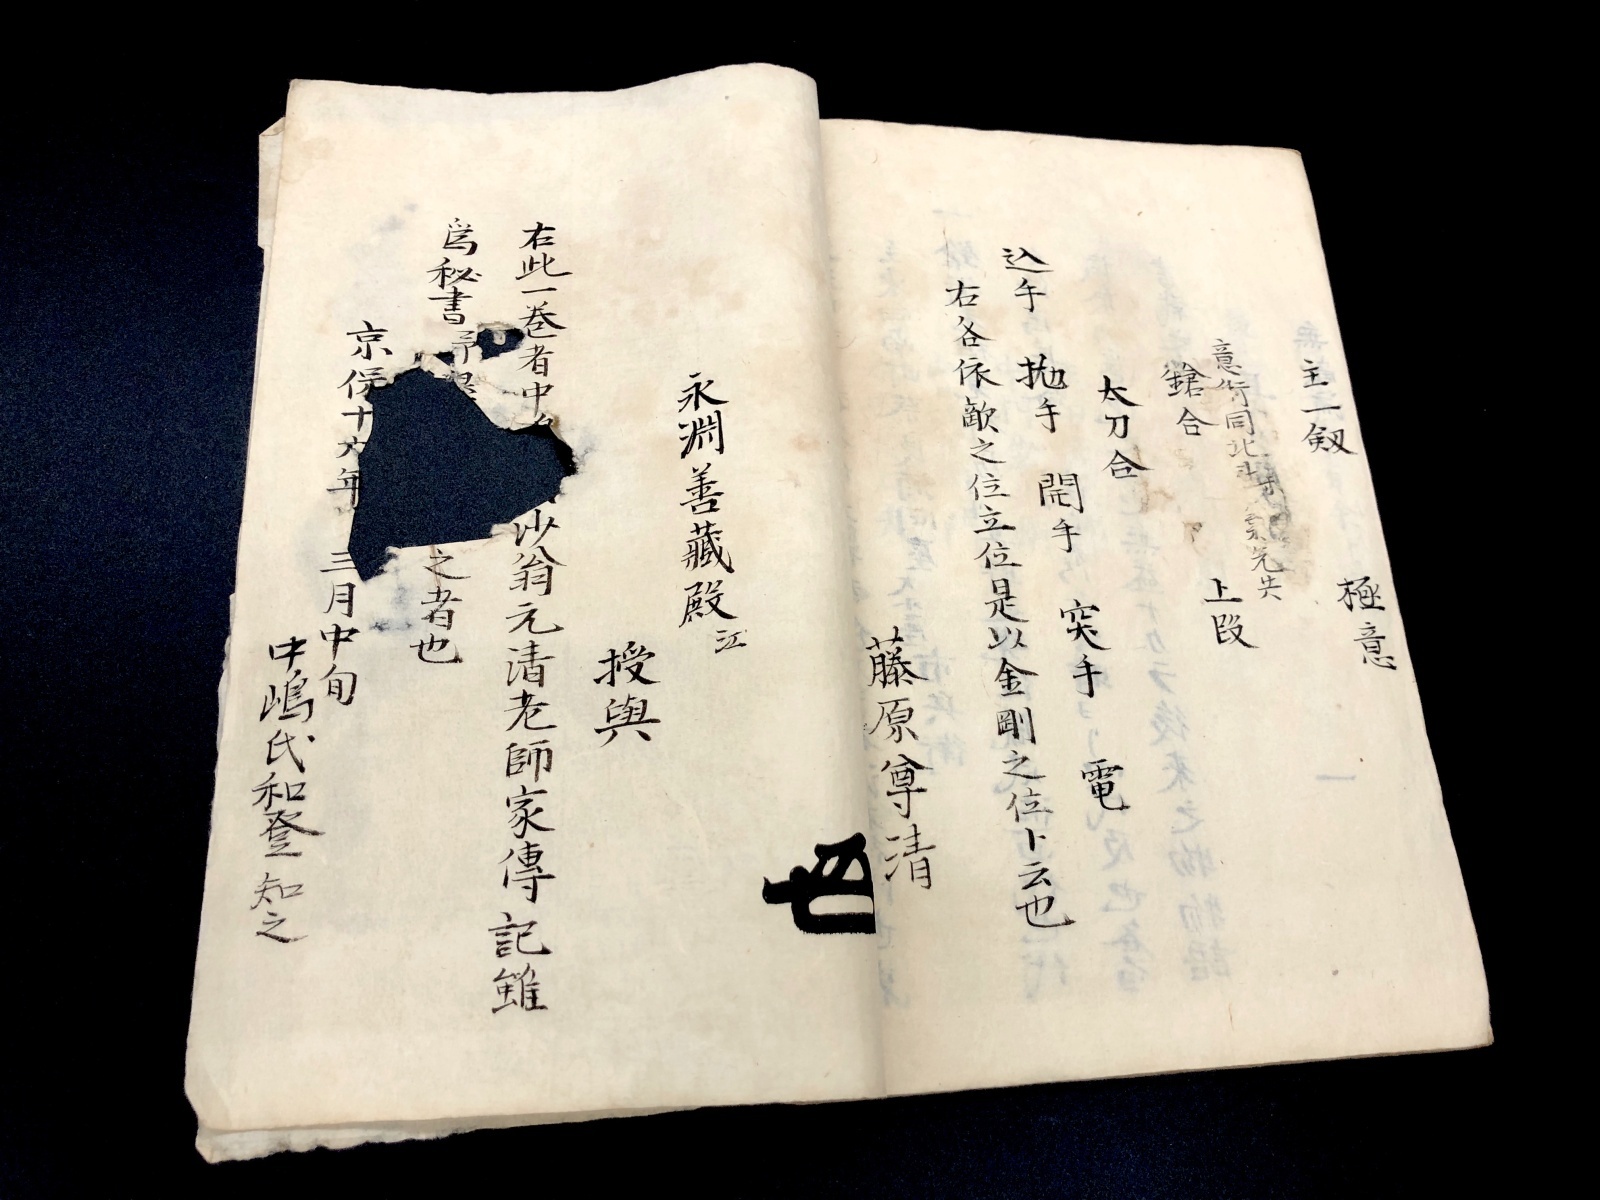 極意
主一剱
意術同
上段
鎗合
太刀合
込手 拋手 開手 突手 電
右各依敵之位立位是以金剛之位ト云也
藤原尊清
永淵善藏殿江
授與
右此一巻者中
沙翁元清老師家傳記雖
為秘書予
之者也
京保十六年 三月中旬
中嶋氏和登知之